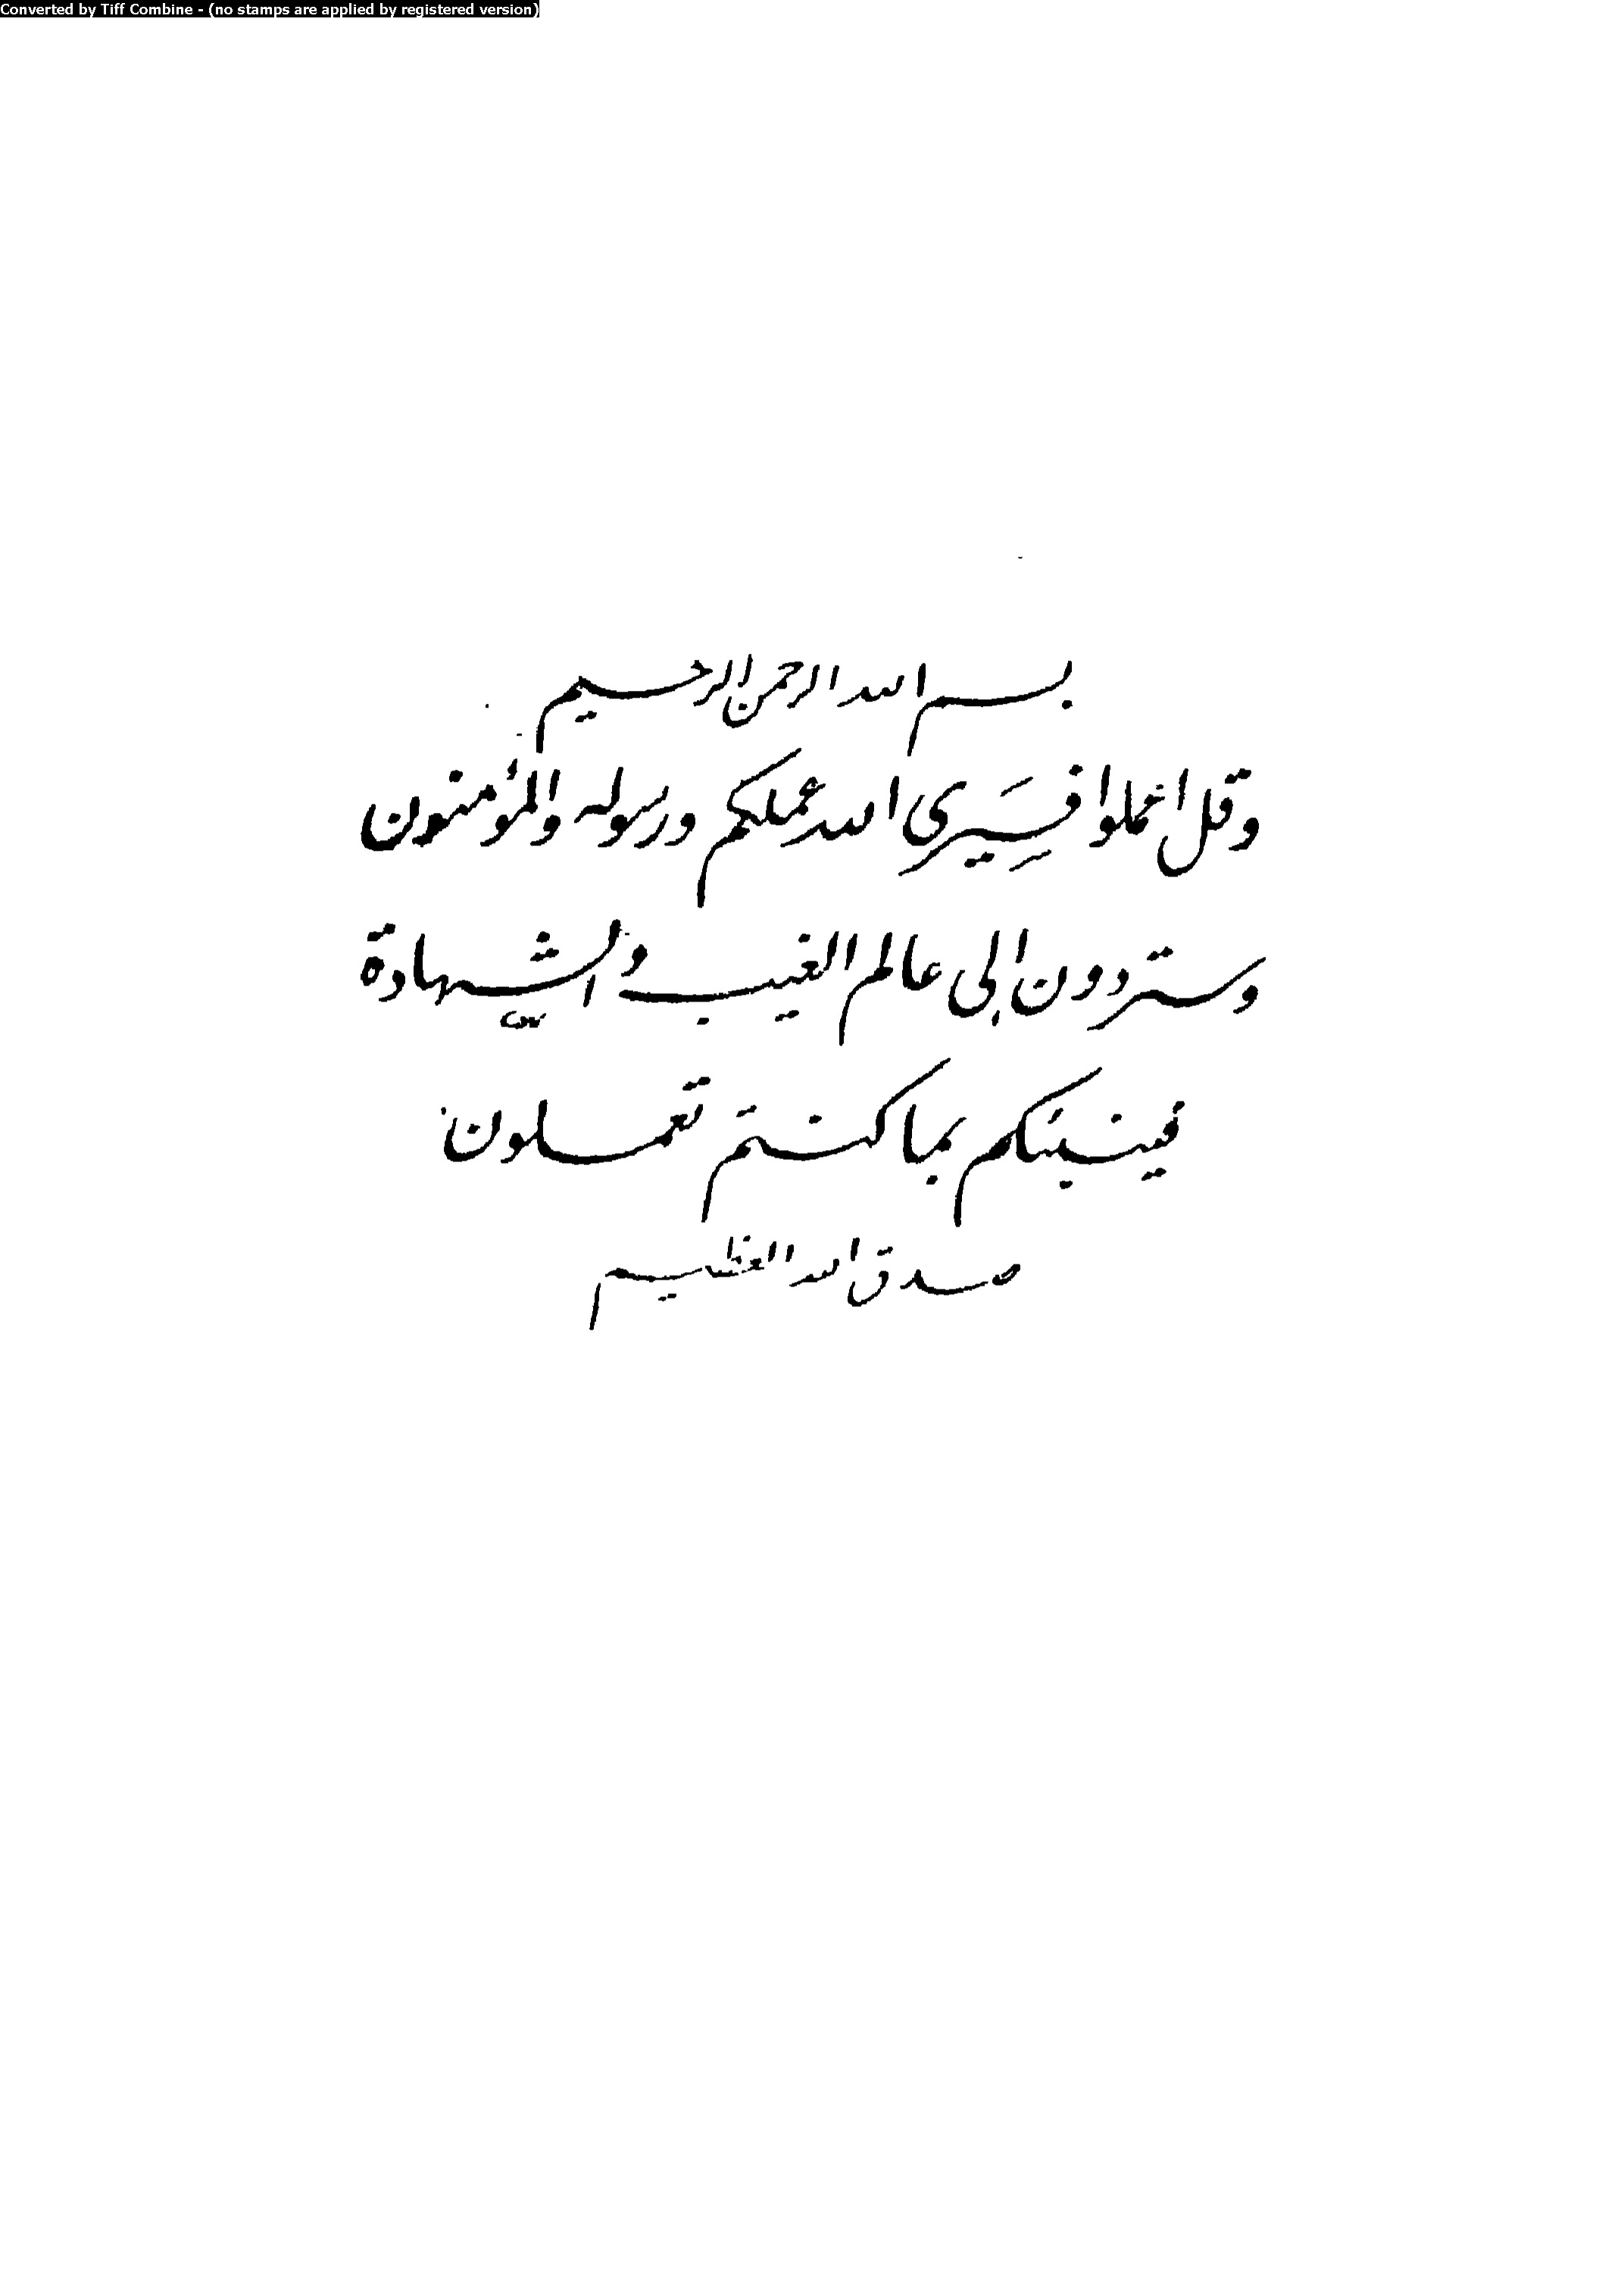 Converted by Tiff Combine - (no stamps are applied by registered version)
بسم الله الرحمن الرحيم
وقل اعملوا فسيرى الله عملكم ورسوله والمؤمنون
وستردون إلى عالم الغيب والشهادة
فينبئكم بما كنتم تعملون
صدق الله العظيم